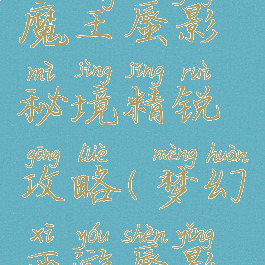 魔王蜃影
mì jìng jīng ruì
秘境精锐
gōng lüè mèng huàn
攻略(梦幻
xī yóu shèn yǐng
西游蜃影